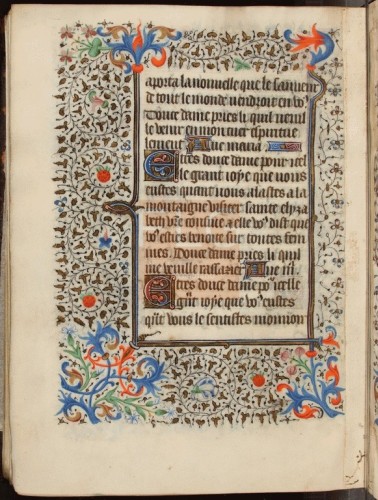 aporta la nouuelle que le sauueur
de tout le monde uendroit en vo9
Douce dame pries li quil uenist
le uenir en mon cuer espirituel
Aue maria
E tres douce dame pour icel
le grant ioye que uous
eustes quant uous alastes a la
montaigne visiter sainte elyza
beth vre cousine & elle vo9 dist que
vo9 esties benoite sur toutes fem
mes. Douce dame pries li quil
me veuille rassasier Aue m̄.
E tres douce dame po9 icelle
gn̄t ioye que vo9 eustes
qūt vous le sentistes mouuoir